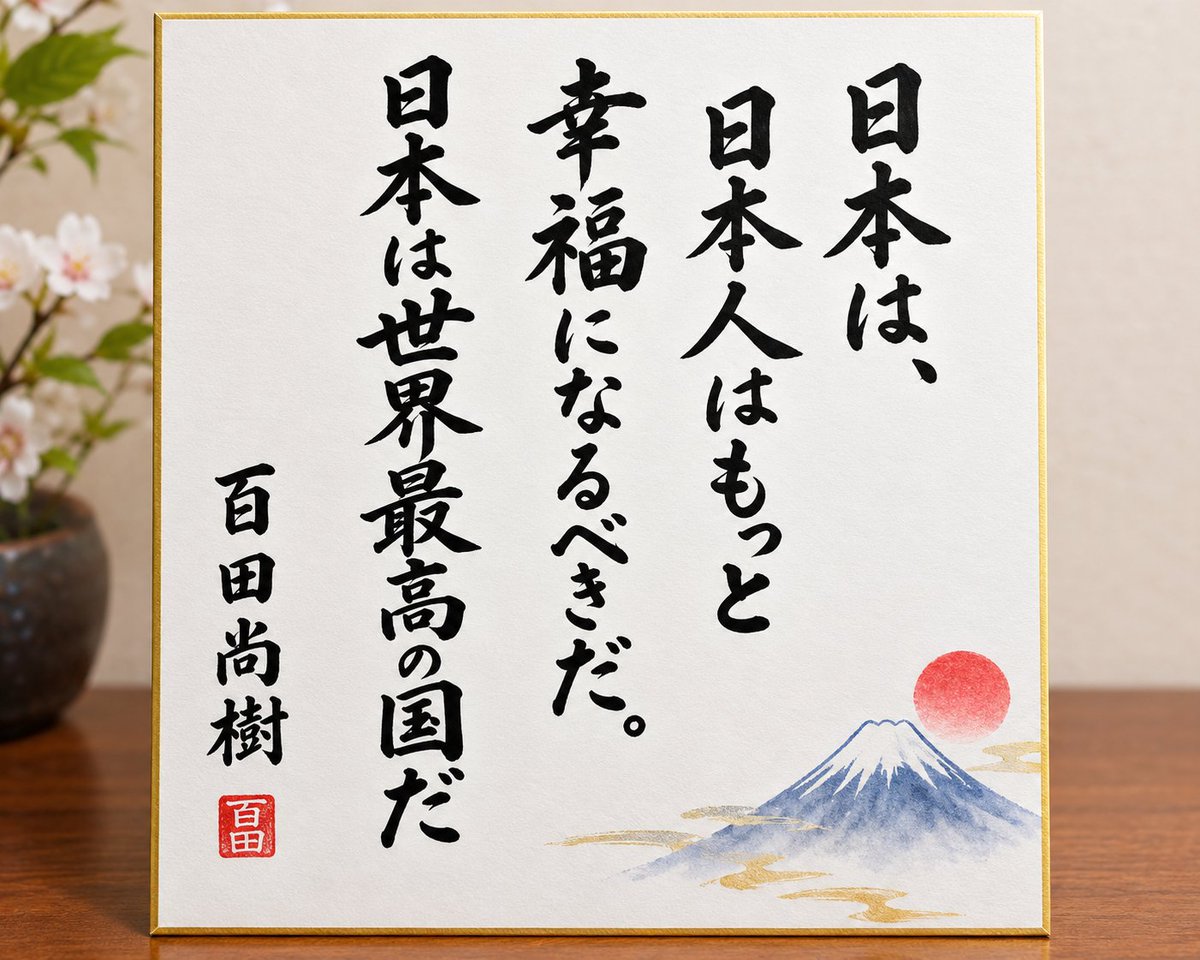 日本は、
日本人はもっと
幸福になるべきだ。
日本は世界最高の国だ
百田尚樹
百田